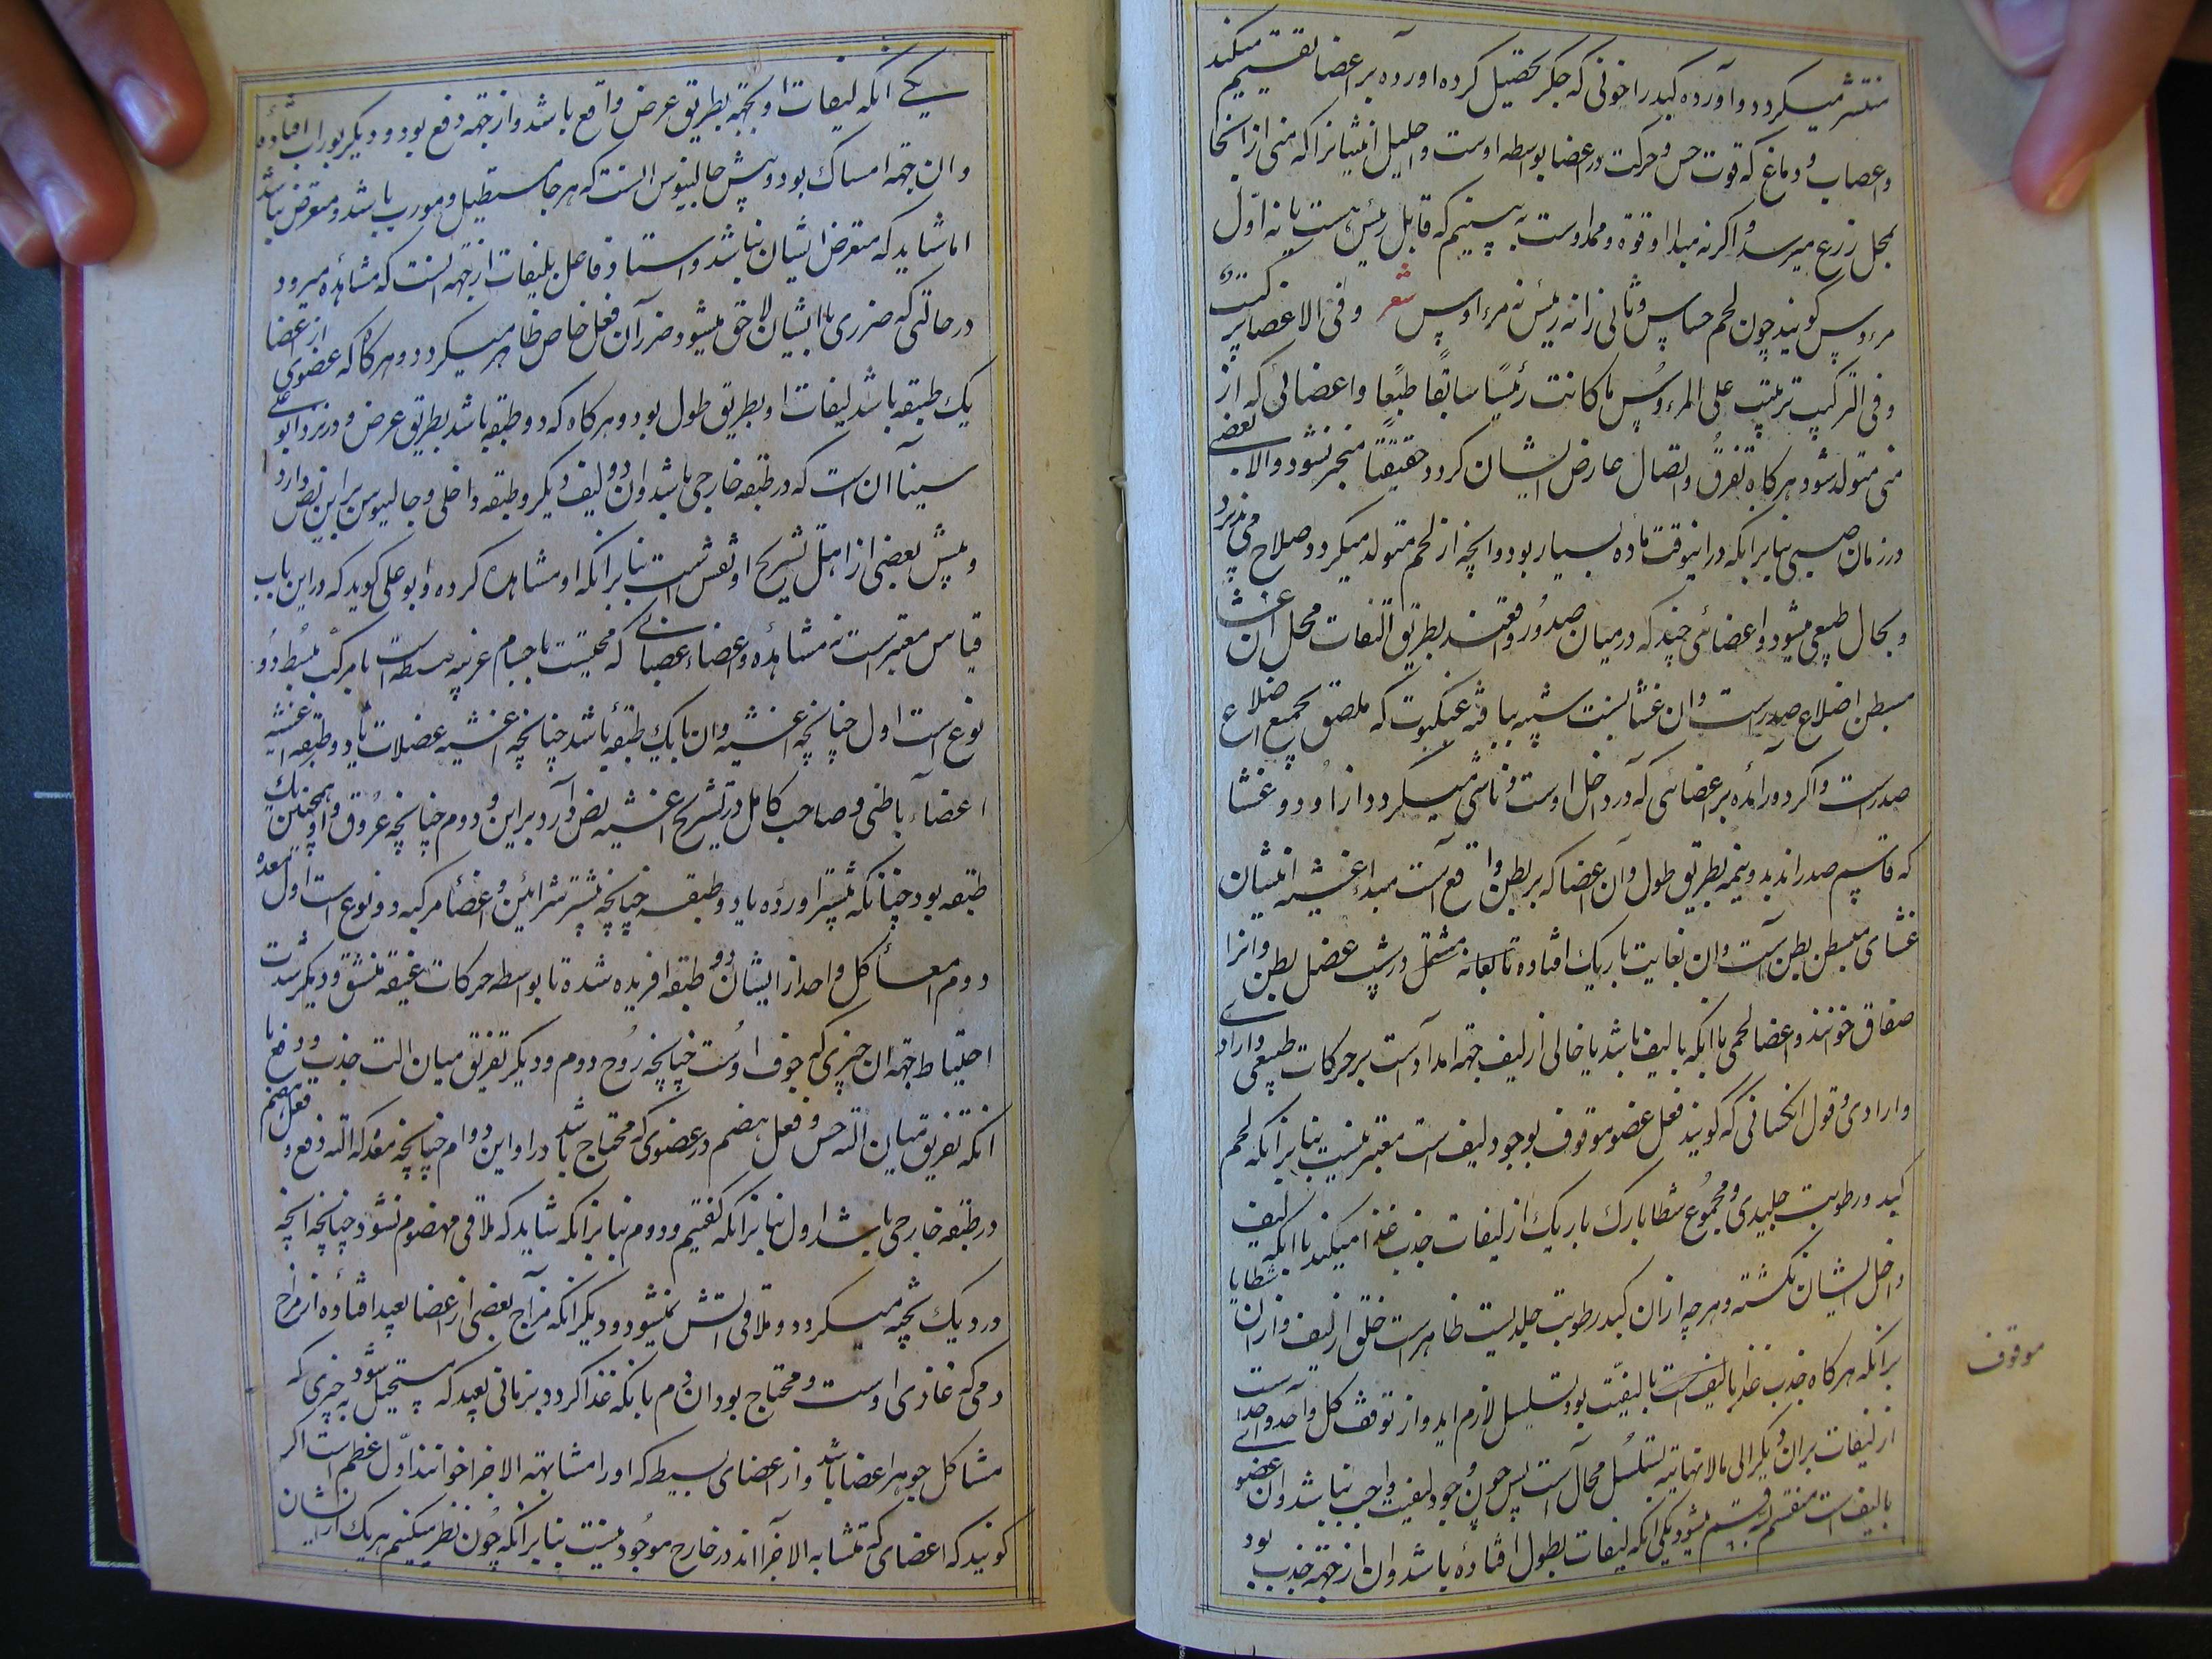 منتشر میکردد و آورده کبد را خونی که جکر تحصیل کرده اورده بر اعضا تقسیم میکند
و اعصاب و دماغ که قوت حس و حرکت در اعضا بواسطه اوست و احلیل انثیانرا که منی از انجا
بمحل زرع میرسد و اکر نه مبدا او قوة و ممد اوست به بینیم که قابل رئیس هست یا نه اول
مرءوس کویند چون لحم حساس و ثانی را نه رئیس نه مرءوس شعر وفی الاعضا ترکیب
وفی الترکیب ترتیب علی المرءوس ما کانت رئیسًا سابقًا طبعًا و اعضائی که از
منی متولد شود هرکاه تفرق و اتصال عارض ایشان کردد حقیقتًا منجبر نشود والا بعضی
در زمان صبی بنابر انکه در اینوقت ماده بسیار بود و انچه از لحم متولد میکردد صلاح می پذیرد
و بحال طبیعی میشود و اعضائی چند که در میان صدور واقعند بطریق التفات محل ان غشا
مبطن اضلاع صدرست و ان غشائیست شبیه ببافته عنکبوت که ملصق بجمیع اضلاع
صدرست و اکرد ورآمده بر اعضائی که در داخل اوست و ناشی میکردد از او دو غشا
که قاسم صدراند بدو نیمه بطریق طول و آن اعضا که بر بطن واقع است مبداء اغشیه ایشان
غشای مبطن بطن است و ان بغایت باریک افتاده مشتمل در شیب عضل بطن و انرا
صفاق خوانند و اعضا لحمی با انکه بالیف باشد یا خالی از لیف جهة امداد است بر حرکات طبیعی و ارادی
و ارادی و قول انکسانی که کویند فعل عضو موقوف بوجود لیف است معتبر نیست بنابر انکه لحم
کبد و رطوبت جلیدی و مجموع شظایا رک باریک از لیفات جذب غذا میکند با انکه لیف
داخل ایشان نکشته و هرچه از ان کبد و رطوبت جلیدیست ظاهرست خلق از لیف و از ان شظایا
برانکه هرکاه جذب غذا بالیف است یا لیفیت بود تسلسل لازم اید و از توقف کل واحد واحدست
موقوف
از لیفات بران دیکر الی مالانهایه تسلسل محال است پس چون وجود لیفیت واجب نباشد و ان عضوی
بالیف است منقسم بسه قسم میشود یکی انکه لیفات بطول افتاده باشد و ان از جهة جذب بود
یکی انکه لیفات او بجهة بطریق عرض واقع باشد و از جهة دفع بود و دیکر بوراب افتاده
و ان جهة امساک بود و پیش جالینوس انست که هرجا مستطیل و مورب باشد و متعرض نباشد
اما شاید که متعرض ایشان نباشد و استاد فاعل بلیفات از جهة انست که مشاهده میرود
در حالتی که ضرری با ایشان لاحق میشود ضرر آن فعل خاص ظاهر میکردد و هرکاه که عضوی از اعضا
یک طبقه باشد لیفات او بطریق طول بود و هرکاه که دو طبقه باشد بطریق عرض و در نزد ابو علی
سینا آن است که در طبقه خارجی باشد و ان دو لیف دیکر و طبقه داخلی و جالینوس براین نص دارد
و پیش بعضی از اهل تشریح او ثقس است بنابر انکه او مشاهده کرده و ابو علی کوید که در این باب
قیاس معتبر است نه مشاهده و اعضاء عصبانی که محیطست با جسام غریبه بسیطه است یا مرکب بسیط دو
نوع است اول چنانچه اغشیه و ان با یک طبقه باشد چنانچه اغشیه عضلات یا دو طبقه اغشیه
اعضاء باطنی و صاحب کامل در تشریح اغشیه نص دارد براین و دوم چنانچه عروق و او همچنین یک
طبقه بود چنانکه پیشتر اورده یا دو طبقه چنانچه پیشتر شرائین و اعضاء مرکبه دو نوع است اول معده
دوم امعا کل واحد از ایشان دو طبقه افریده شده تا بواسطه حرکات عنیفه منشق و دیکر شدت
احتیاط جهة ان چیزی که جوف اوست چنانچه روح دوم و دیکر تفریق میان الت جذب و دفع یا
انکه تفریق میان الة حس و فعل هضم در عضوی که محتاج باشد در او این دو ام چنانچه معده که الة دفع و فعل هضم
در طبقه خارجی باشد اول بنابر انکه کفتیم و دوم بنابر انکه شاید که ملاقی مهضوم نشود چنانچه انچه
در دیک پخته میکردد و ملاقی اتش نمیشود و دیکر انکه مزاج بعضی از اعضا بعید افتاده از مزاج
دمی که غاذی اوست و محتاج بود ان دم بانکه غذا کردد بزمانی بعید که مستحیل شود به چیزی که
مشاکل جوهر اعضا باشد و از اعضای بسیط که او را متشابهة الاجزا خوانند اول عظم است اکر
کویند که اعضای که متشابه الاجزآاند در خارج موجود نیست بنابر انکه چون نظر میکنیم هریک از ایشان